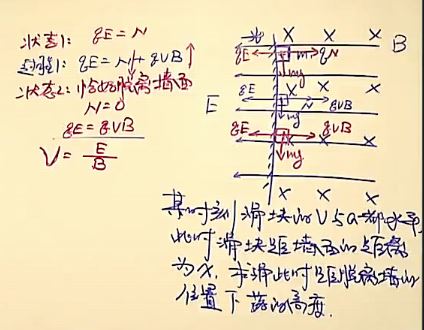 状态1: qE = N
过程1: qE = N + qvB ↑
状态2: 恰好脱离墙面
N = 0
qE = qvB
V = E/B
光 × × B
qE m N
mg
E qE N qvB
mg
qE N qvB
mg
某时刻滑块的V与a都水平,
此时滑块距墙面的距离
为x, 求滑此时距脱离墙的
位置下落的高度.